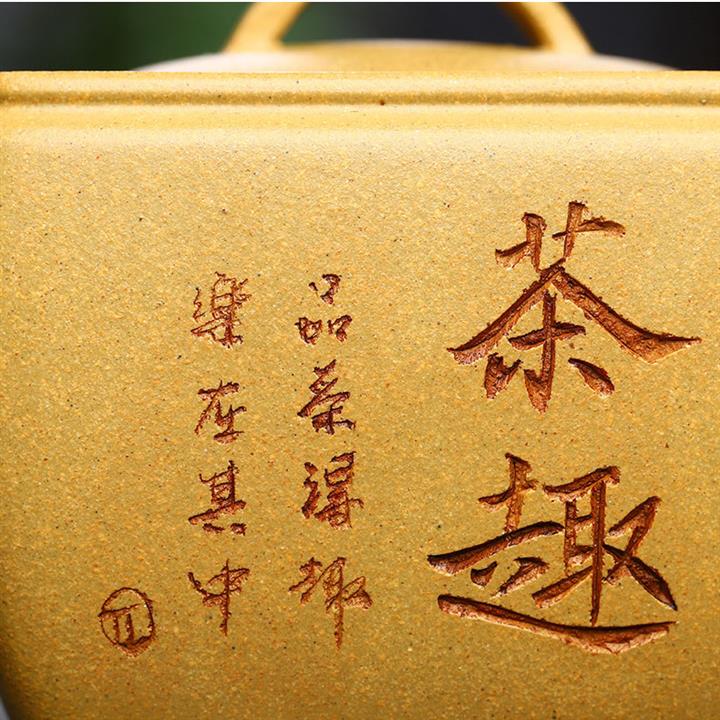 茶趣
品茶得趣
樂在其中